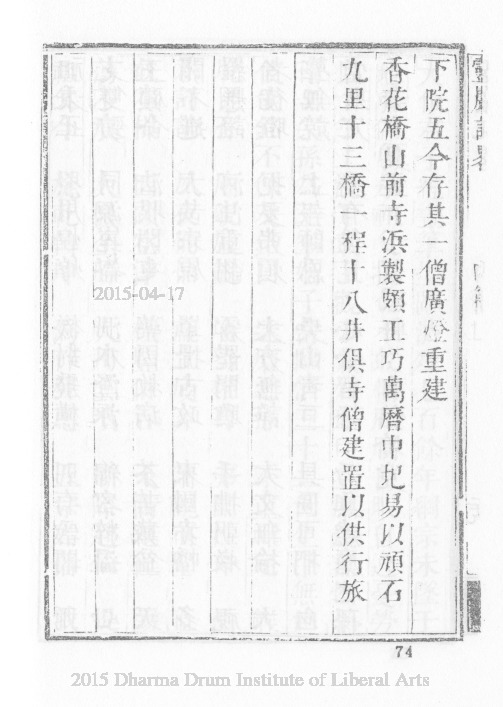 下院五今存其一僧廣燈重建
香花橋山前寺浜製頗工巧萬曆中圮易以頑石
九里十三橋一程十八井俱寺僧建置以供行旅
2015-04-17
74
2015 Dharma Drum Institute of Liberal Arts